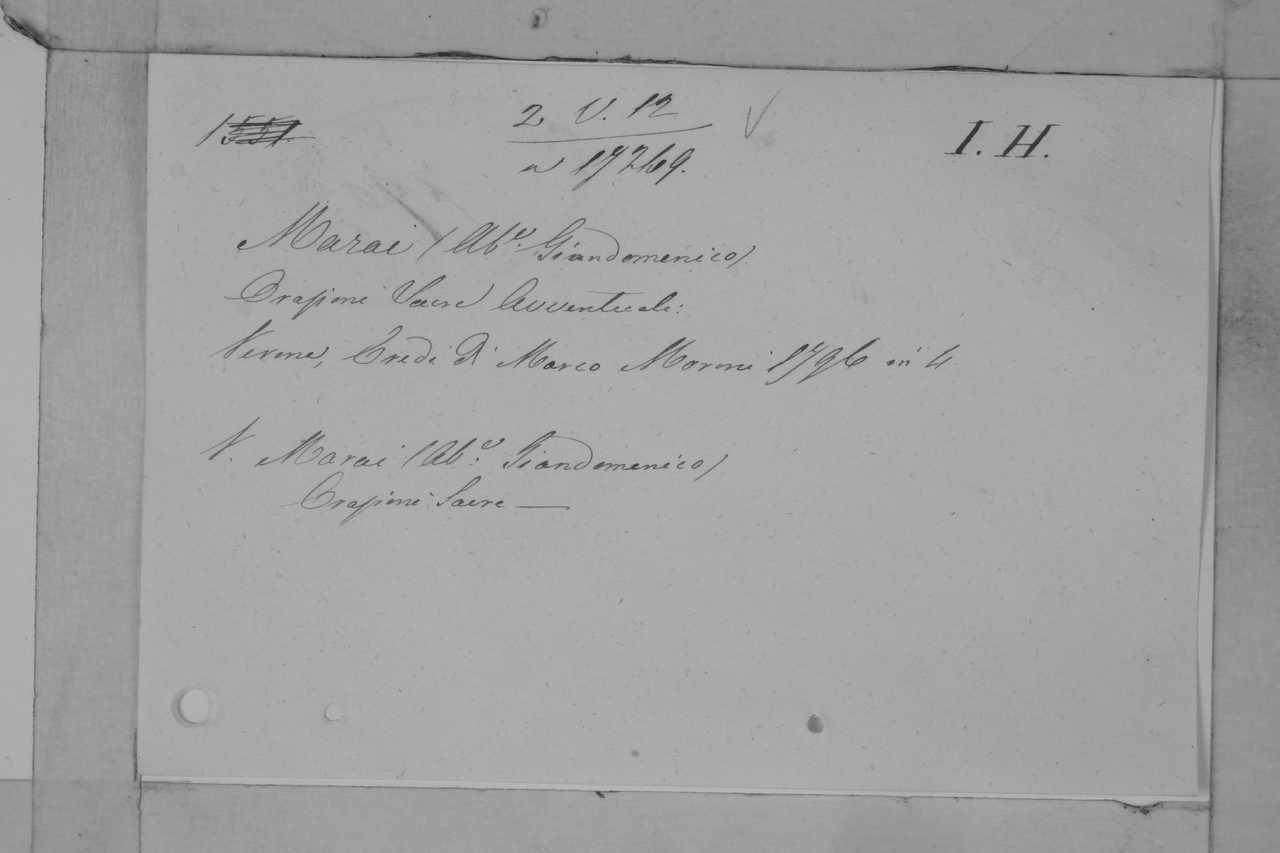 2 V. 12
I. H.
a 17269.
Marai (Ab.e Giandomenico)
Orazioni Sacre Avventuali:
Verona, Eredi di Marco Moroni 1796 in 4
V. Marai (Ab.e Giandomenico)
Orazioni Sacre —